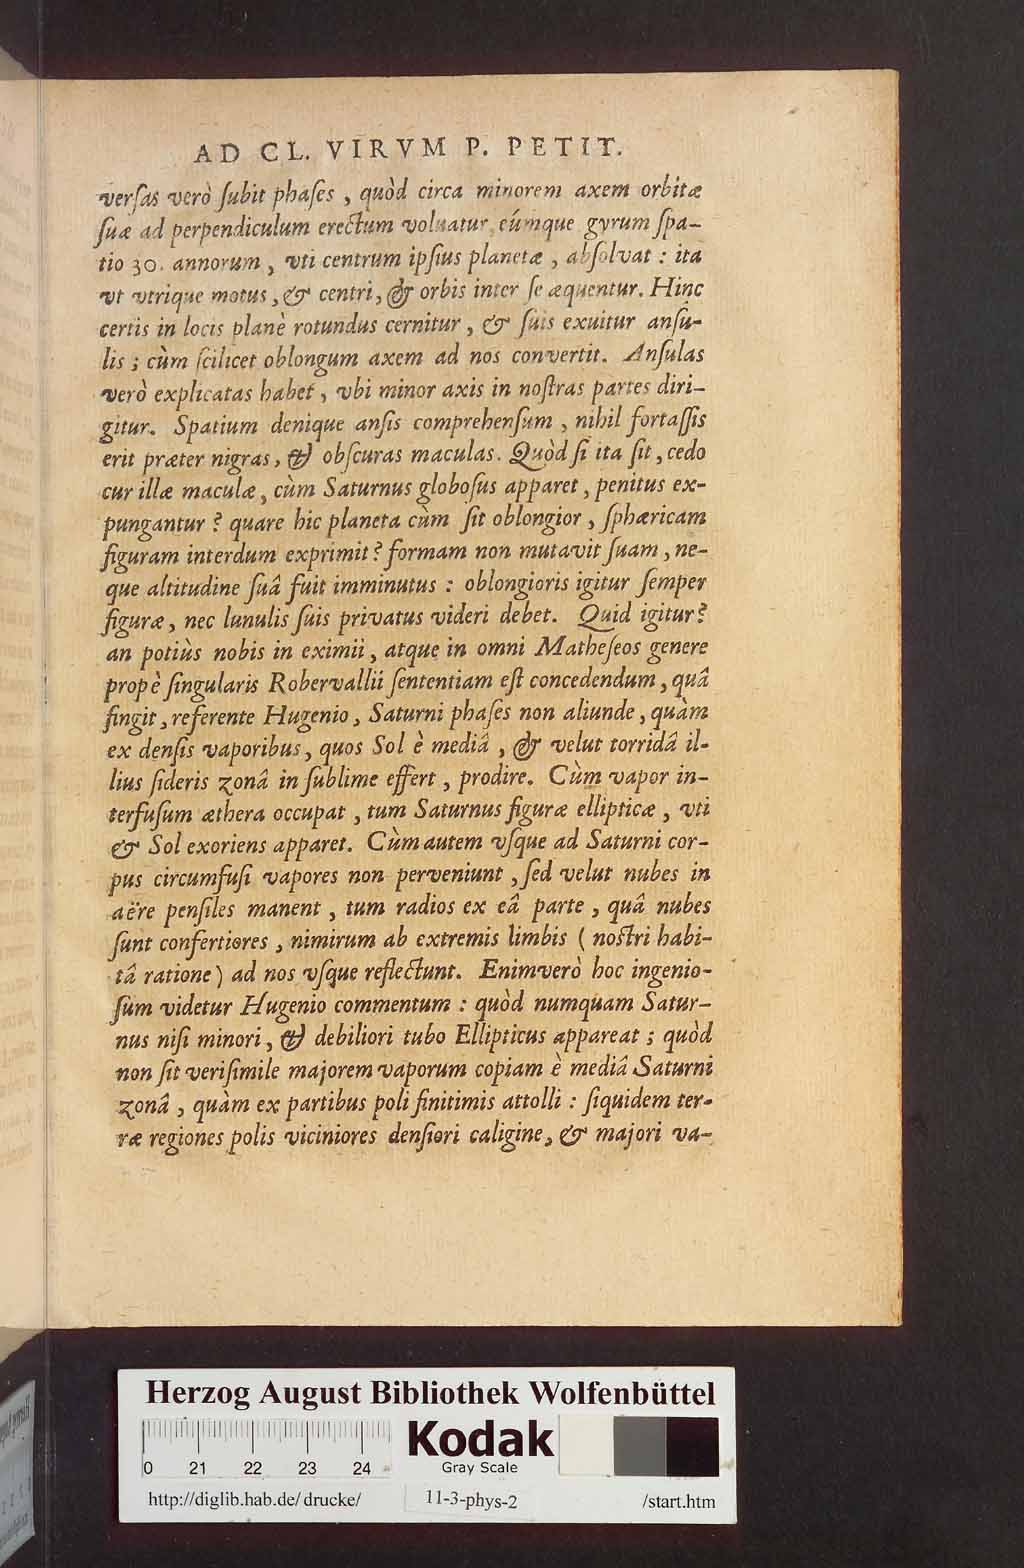 AD CL. VIRVM P. PETIT.
verſas verò ſubit phaſes, quòd circa minorem axem orbitæ
ſuæ ad perpendiculum erectum voluatur, eúmque gyrum ſpa-
tio 30. annorum, vti centrum ipſius planetæ, abſolvat : ita
vt vtrique motus, & centri, & orbis inter ſe æquentur. Hinc
certis in locis planè rotundus cernitur, & ſuis exuitur anſu-
lis ; cùm ſcilicet oblongum axem ad nos convertit. Anſulas
verò explicatas habet, vbi minor axis in noſtras partes diri-
gitur. Spatium denique anſis comprehenſum, nihil fortaſſis
erit præter nigras, & obſcuras maculas. Quòd ſi ita ſit, cedo
cur illæ maculæ, cùm Saturnus globoſus apparet, penitus ex-
pungantur ? quare hic planeta cùm ſit oblongior, ſphæricam
figuram interdum exprimit ? formam non mutavit ſuam, ne-
que altitudine ſuâ fuit imminutus : oblongioris igitur ſemper
figuræ, nec lunulis ſuis privatus videri debet. Quid igitur ?
an potiùs nobis in eximii, atque in omni Matheſeos genere
propè ſingularis Robervallii ſententiam eſt concedendum, quâ
fingit, referente Hugenio, Saturni phaſes non aliunde, quàm
ex denſis vaporibus, quos Sol è mediâ, & velut torridâ il-
lius ſideris zonâ in ſublime effert, prodire. Cùm vapor in-
terfuſum æthera occupat, tum Saturnus figuræ ellipticæ, vti
& Sol exoriens apparet. Cùm autem vſque ad Saturni cor-
pus circumfuſi vapores non perveniunt, ſed velut nubes in
aëre penſiles manent, tum radios ex eâ parte, quâ nubes
ſunt confertiores, nimirum ab extremis limbis ( noſtri habi-
tâ ratione ) ad nos vſque reflectunt. Enimverò hoc ingenio-
ſum videtur Hugenio commentum : quòd numquam Satur-
nus niſi minori, & debiliori tubo Ellipticus appareat ; quòd
non ſit veriſimile majorem vaporum copiam è mediâ Saturni
zonâ, quàm ex partibus poli finitimis attolli : ſiquidem ter-
ræ regiones polis viciniores denſiori caligine, & majori va-
Herzog August Bibliothek Wolfenbüttel
0 21 22 23 24
Kodak
Gray Scale
http://diglib.hab.de/drucke/ 11-3-phys-2 /start.htm